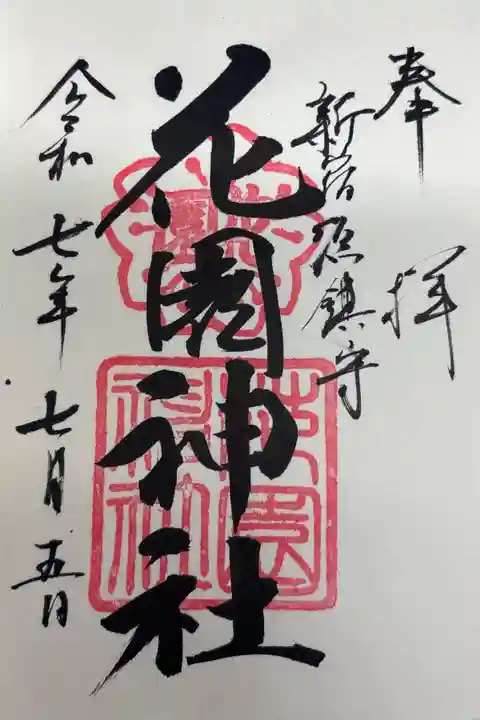 奉拝
新宿総鎮守
花園神社
令和七年七月五日
花園神社